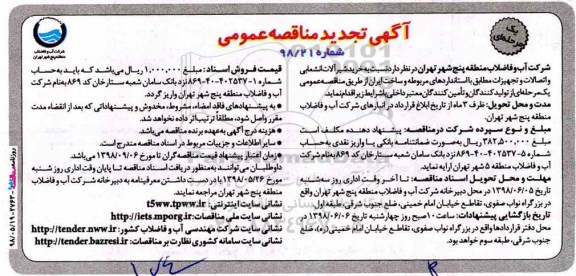 آگهی تجدید مناقصه عمومی
شماره ۹۸/۲۱
یک مرحله‌ای
شرکت آب و فاضلاب
منطقه پنج شهر تهران
شرکت آب وفاضلاب منطقه پنج شهر تهران در نظر دارد نسبت به خرید شیرآلات انشعابی
و اتصالات و تجهیزات مطابق با استانداردهای مربوطه و ساخت ایران از طریق مناقصه عمومی
یک مرحله‌ای از تولیدکنندگان و تأمین‌کنندگان معتبر داخلی با شرایط زیر اقدام نماید.
مدت و محل تحویل: ظرف ۳ ماه از تاریخ ابلاغ قرارداد در انبارهای شرکت آب و فاضلاب
منطقه پنج شهر تهران.
مبلغ و نوع سپرده شرکت در مناقصه: پیشنهاد دهنده مکلف است
مبلغ ۳۸۲,۵۰۰,۰۰۰ ریال به صورت ضمانتنامه بانکی یا واریز نقدی به حساب
شماره ۵-۴۰۲۵۳۷-۴۰-۸۶۹ نزد بانک سامان شعبه ستارخان کد ۸۶۹ به نام شرکت
آب و فاضلاب منطقه ۵ شهر تهران ارایه نماید.
مهلت و محل تحویل اسناد مناقصه: تا آخر وقت اداری روز سه‌شنبه
تاریخ ۱۳۹۸/۰۶/۰۵ در محل دبیرخانه شرکت آب و فاضلاب منطقه پنج شهر تهران واقع
در بزرگراه نواب صفوی، تقاطع خیابان امام خمینی، ضلع جنوب شرقی، طبقه اول
تاریخ بازگشایی پیشنهادات: ساعت ۱۰ صبح روز چهارشنبه تاریخ ۱۳۹۸/۰۶/۰۶ در
محل دفتر قراردادها واقع در بزرگراه نواب صفوی، تقاطع خیابان امام خمینی (ره)، ضلع
جنوب شرقی، طبقه سوم خواهد بود.
قیمت فروش اسناد: مبلغ ۱,۰۰۰,۰۰۰ ریال می‌باشد که باید به حساب
شماره ۱-۴۰۲۵۳۷-۴۰-۸۶۹ نزد بانک سامان شعبه ستارخان کد ۸۶۹ به نام شرکت
آب و فاضلاب منطقه پنج شهر تهران واریز گردد.
* به پیشنهادهای فاقد امضاء، مشروط، مخدوش و پیشنهاداتی که بعد از انقضاء مدت
مقرر واصل شود، مطلقاً ترتیب اثر داده نخواهد شد.
* هزینه درج آگهی به عهده برنده مناقصه می‌باشد.
* سایر اطلاعات و جزییات مربوط در اسناد مناقصه مندرج است.
* زمان اعتبار پیشنهاد قیمت مناقصه‌گران تا مورخ ۱۳۹۸/۰۹/۰۶ می‌باشد.
داوطلبان می‌توانند به منظور دریافت اسناد مناقصه تا پایان وقت اداری روز شنبه
مورخ ۱۳۹۸/۰۵/۲۶ با در دست داشتن معرفینامه به دبیرخانه شرکت آب و فاضلاب
منطقه پنج شهر تهران مراجعه نمایند.
نشانی سایت اینترنتی: t5ww.tpww.ir
نشانی سایت ملی مناقصات: http://iets.mporg.ir
نشانی سایت شرکت مهندسی آب و فاضلاب کشور: http://tender.nww.ir
نشانی سایت سامانه کشوری نظارت بر مناقصات: http://tender.bazresi.ir
۹۸/۰۵/۱۹-۲۷۶۳